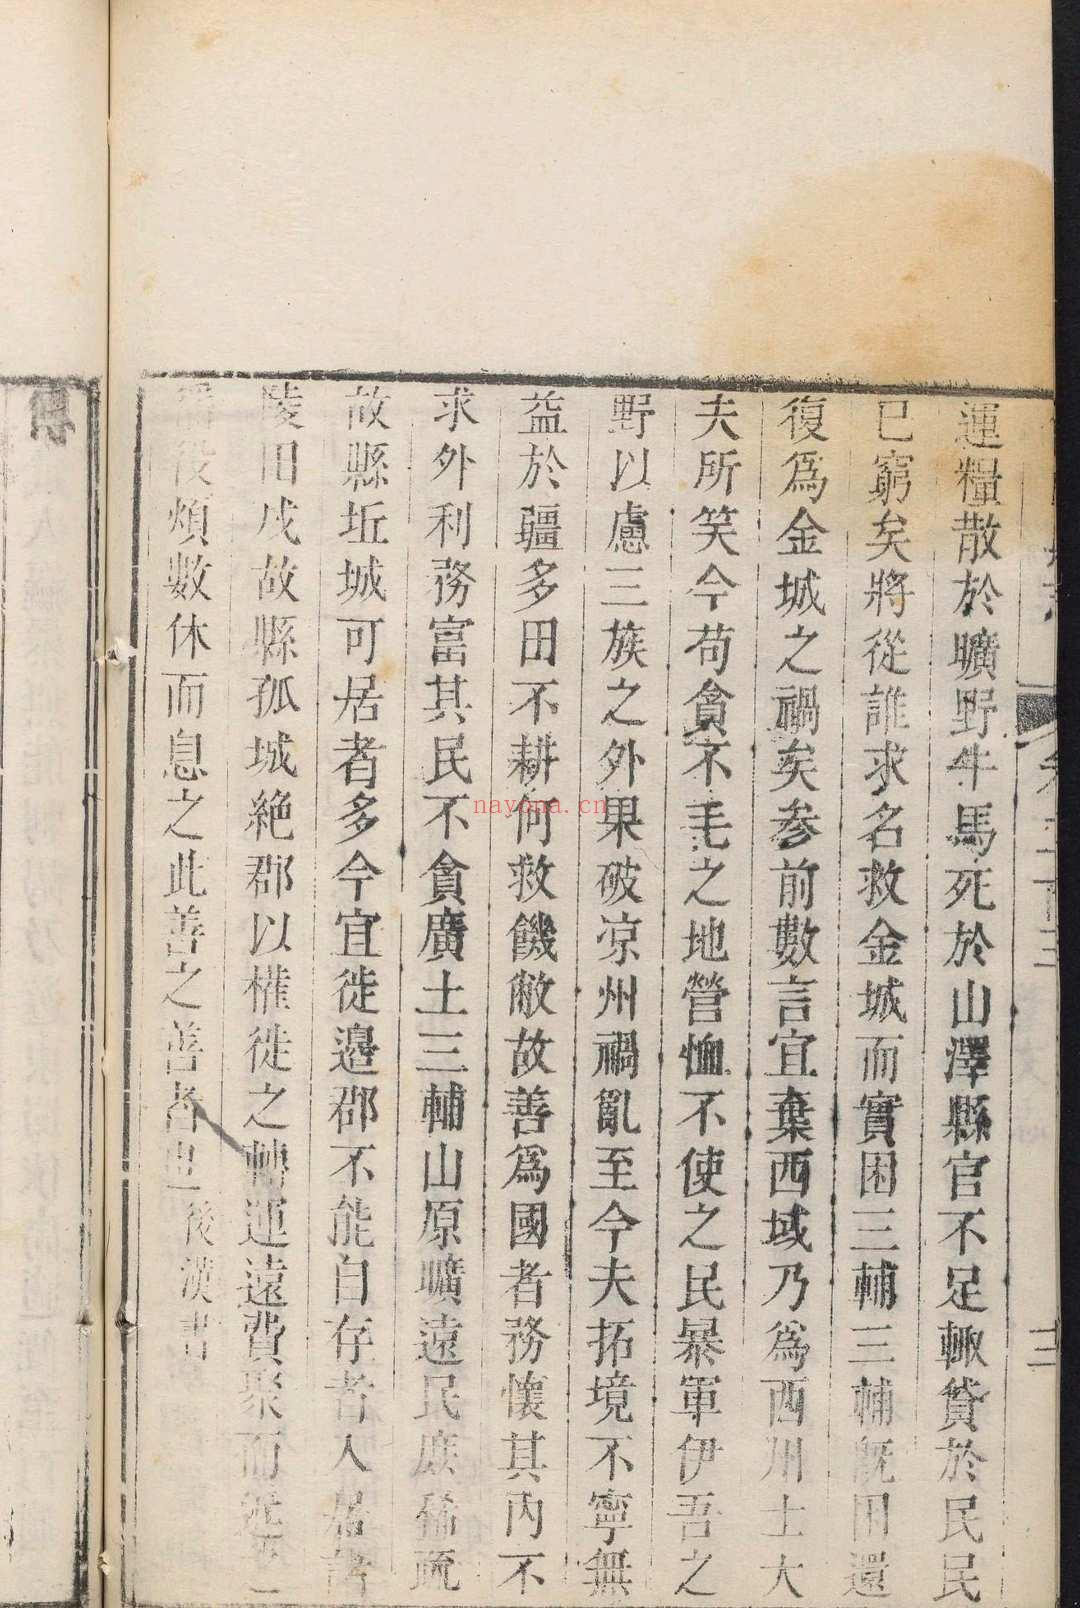 運糧散於曠野牛馬死於山澤縣官不足輙貸於民民
已窮矣將從誰求名救金城而實困三輔三輔旣困還
復爲金城之禍矣参前數言宜棄西域乃爲西州士大
夫所笑今苟貪不毛之地營恤不使之民暴軍伊吾之
野以慮三族之外果破凉州禍亂至今夫拓境不寧無
益於疆多田不耕何救饑敝故善爲國者務懷其內不
求外利務富其民不貪廣土三輔山原曠遠民庶稀疏
故縣坵城可居者多今宜徙邊郡不能自存者入居諸
陵田戍故縣孤城絶郡以權徙之轉運遠費聚而近之
役煩數休而息之此善之善者也後漢書
nayona.cn